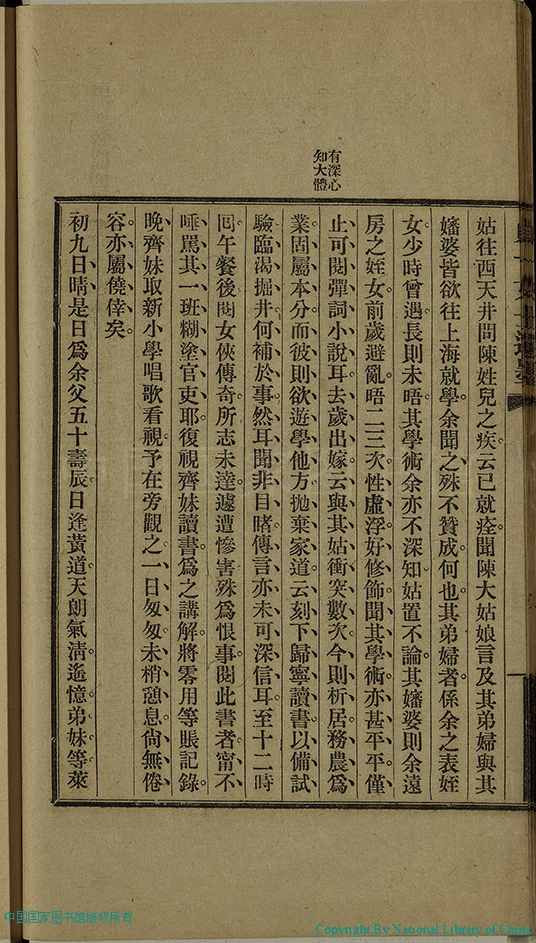 有深心
知大體
姑往西天井問陳姓兒之疾。云已就痊。聞陳大姑娘言及其弟婦與其
嬸婆皆欲往上海就學。余聞之殊不贊成。何也。其弟婦者。係余之表姪
女。少時曾遇。長則未晤。其學術余亦不深知。姑置不論。其嬸婆則余遠
房之姪女。前歲避亂。晤二三次。性虛浮。好修飾。聞其學術亦甚平平。僅
止可閱彈詞小說耳。去歲出嫁。云與其姑衝突數次。今則析居。務農為
業。固屬本分。而彼則欲遊學他方。拋棄家道。云刻下歸寧讀書。以備試
驗。臨渴掘井。何補於事。然耳聞非目睹。傳言亦未可深信耳。至十二時
回。午餐後閱女俠傳奇。所志未達。遽遭慘害。殊為恨事。閱此書者。甯不
唾罵其一班糊塗官吏耶。復視齊妹讀書。為之講解。將零用等賬記錄。
晚齊妹取新小學唱歌看視。予在旁觀之。一日匆匆。未稍憩息。尙無倦
容。亦屬僥倖矣。
初九日。晴。是日為余父五十壽辰。日逢黃道。天朗氣清。遙憶弟妹等萊
中国国家图书馆版权所有
Copyright By National Library of China